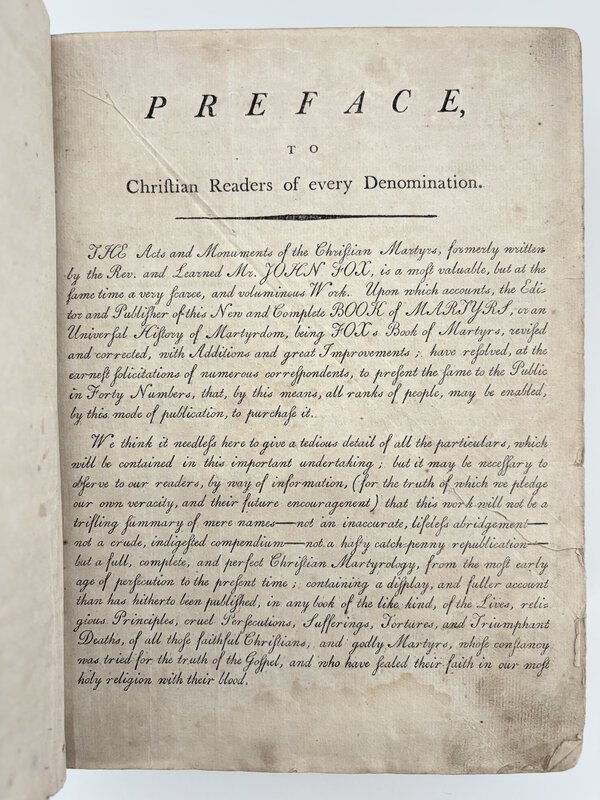 PREFACE,
TO
Chriſtian Readers of every Denomination.
THE Acts and Monuments of the Chriſtian Martyrs, formerly written
by the Rev. and Learned Mr. JOHN FOX, is a moſt valuable, but at the
ſame time a very ſcarce, and voluminous Work. Upon which accounts, the Edi-
tor and Publiſher of this New and Complete BOOK of MARTYRS, or an
Univerſal Hiſtory of Martyrdom, being FOX's Book of Martyrs, reviſed
and corrected, with Additions and great Improvements; have reſolved, at the
earneſt ſolicitations of numerous correſpondents, to preſent the ſame to the Public
in Forty Numbers, that, by this means, all ranks of people, may be enabled,
by this mode of publication, to purchaſe it.
We think it needleſs here to give a tedious detail of all the particulars, which
will be contained in this important undertaking; but it may be neceſſary to
obſerve to our readers, by way of information, (for the truth of which we pledge
our own veracity, and their future encouragement) that this work will not be a
trifling ſummary of mere names—not an inaccurate, lifeleſs abridgement—
not a crude, indigeſted compendium—not a haſty catch-penny republication—
but a full, complete, and perfect Chriſtian Martyrology, from the moſt early
age of perſecution to the preſent time; containing a diſplay, and fuller account
than has hitherto been publiſhed, in any book of the like kind, of the Lives, reli-
gious Principles, cruel Perſecutions, Sufferings, Tortures, and Triumphant
Deaths, of all thoſe faithful Chriſtians, and godly Martyrs, whoſe conſtancy
was tried for the truth of the Goſpel, and who have ſealed their faith in our moſt
holy religion with their blood.